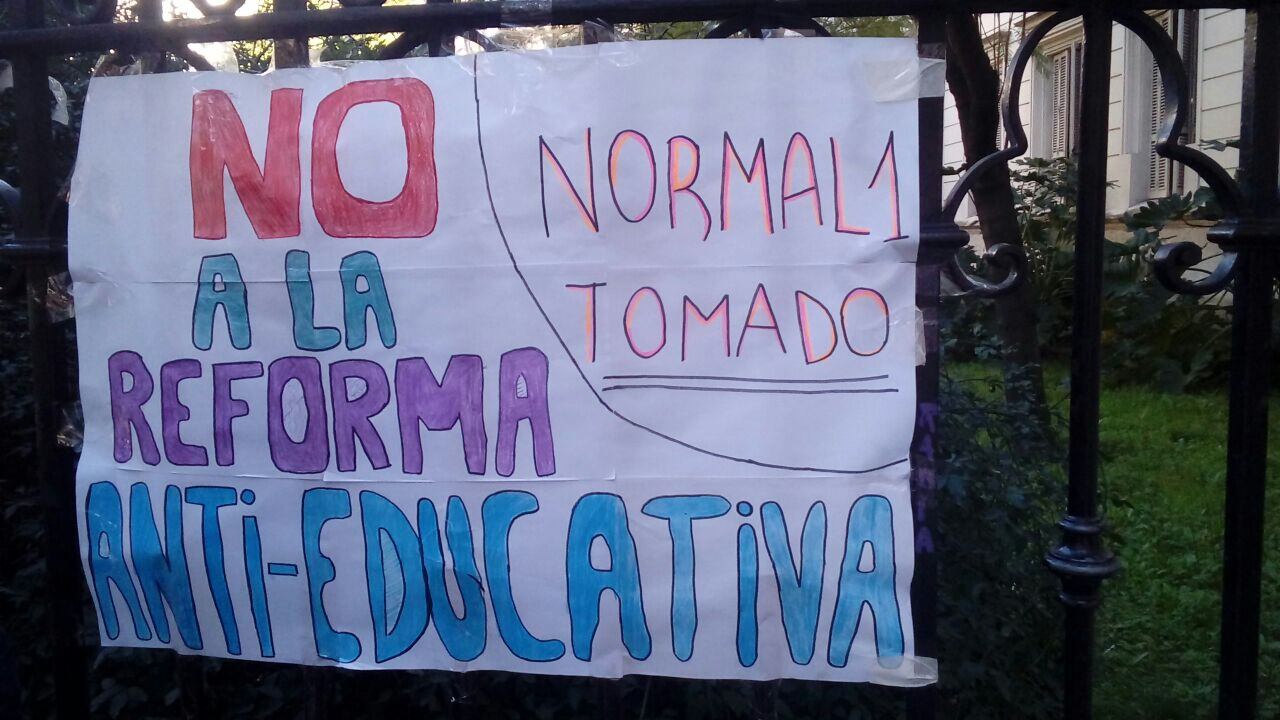 NO
A LA
REFORMA
ANTI-EDUCATIVA
NORMAL 1
TOMADO